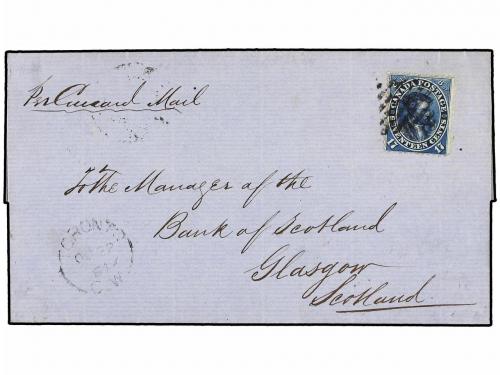 Per Cunard Mail
CANADA POSTAGE
17 SEVENTEEN CENTS 17
To the Manager of the
Bank of Scotland
Glasgow
Scotland
TORONTO
C.W